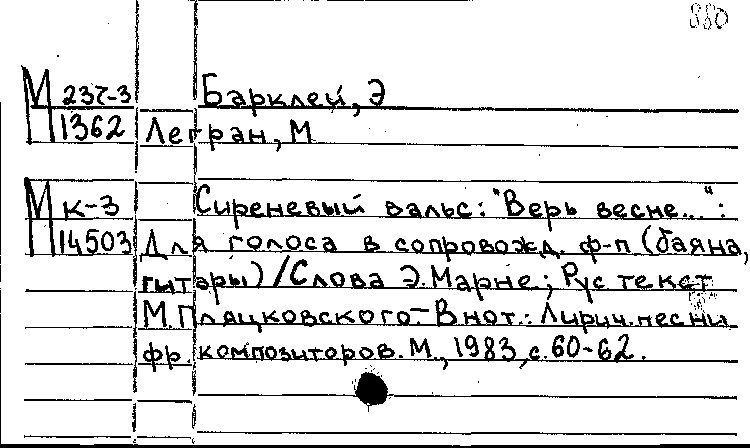 880
М 237-3 Барклей, Э
1362 Легран, М
М к-3 Сиреневый вальс: "Верь весне...":
14503 Для голоса в сопровожд. ф-п (баяна,
гитары) / Слова Э. Марне; Рус текст
М. Пляцковского.- В нот.: Лирич. песни
фр. композиторов. М., 1983, с. 60-62.